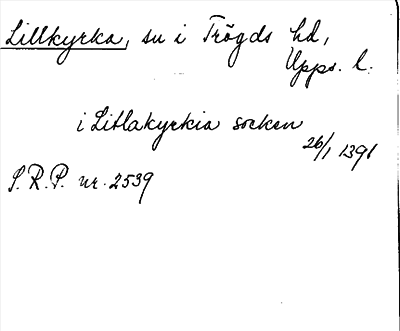 Lillkyrka, sn i Trögds hd,
Upps. l.
i Litlakyrkia socken
26/1 1396
S.R.P. nr. 2539